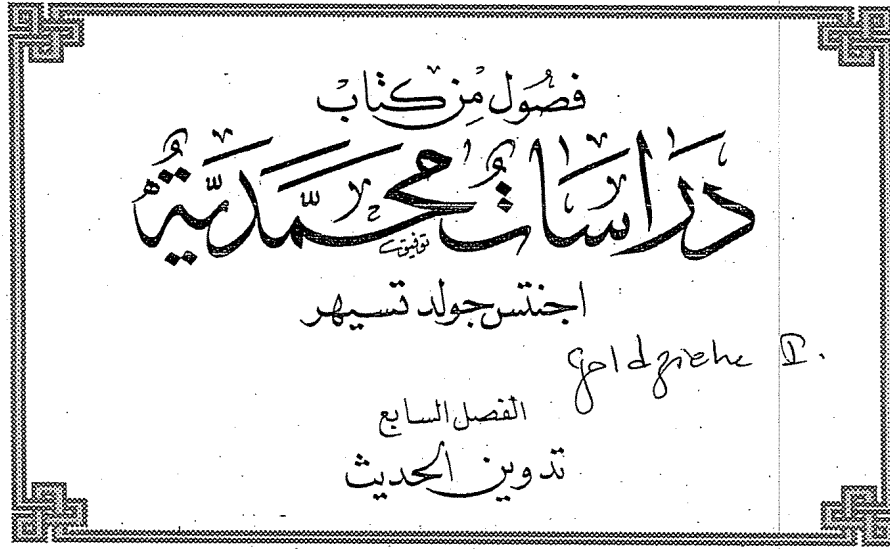 فصُول مِن كتاب
دَرَاسَاتٌ محَمَّدِيَّةٌ
توفيق
اجنتس جولد تسيهر
Goldziehe I.
الفصل السابع
تدوين الحديث